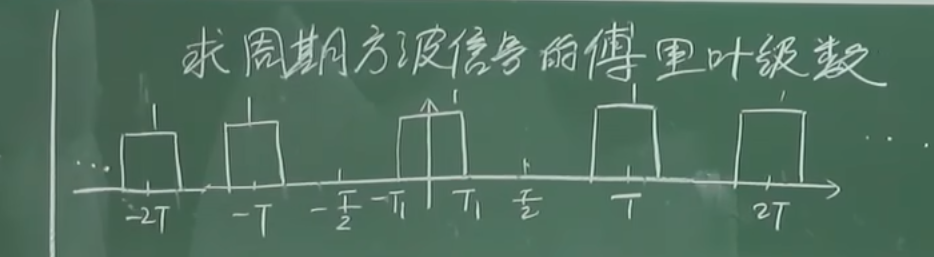 求周期方波信号的傅里叶级数
1 1 1 1 1
... ...
-2T -T -T/2 -T₁ T₁ T/2 T 2T